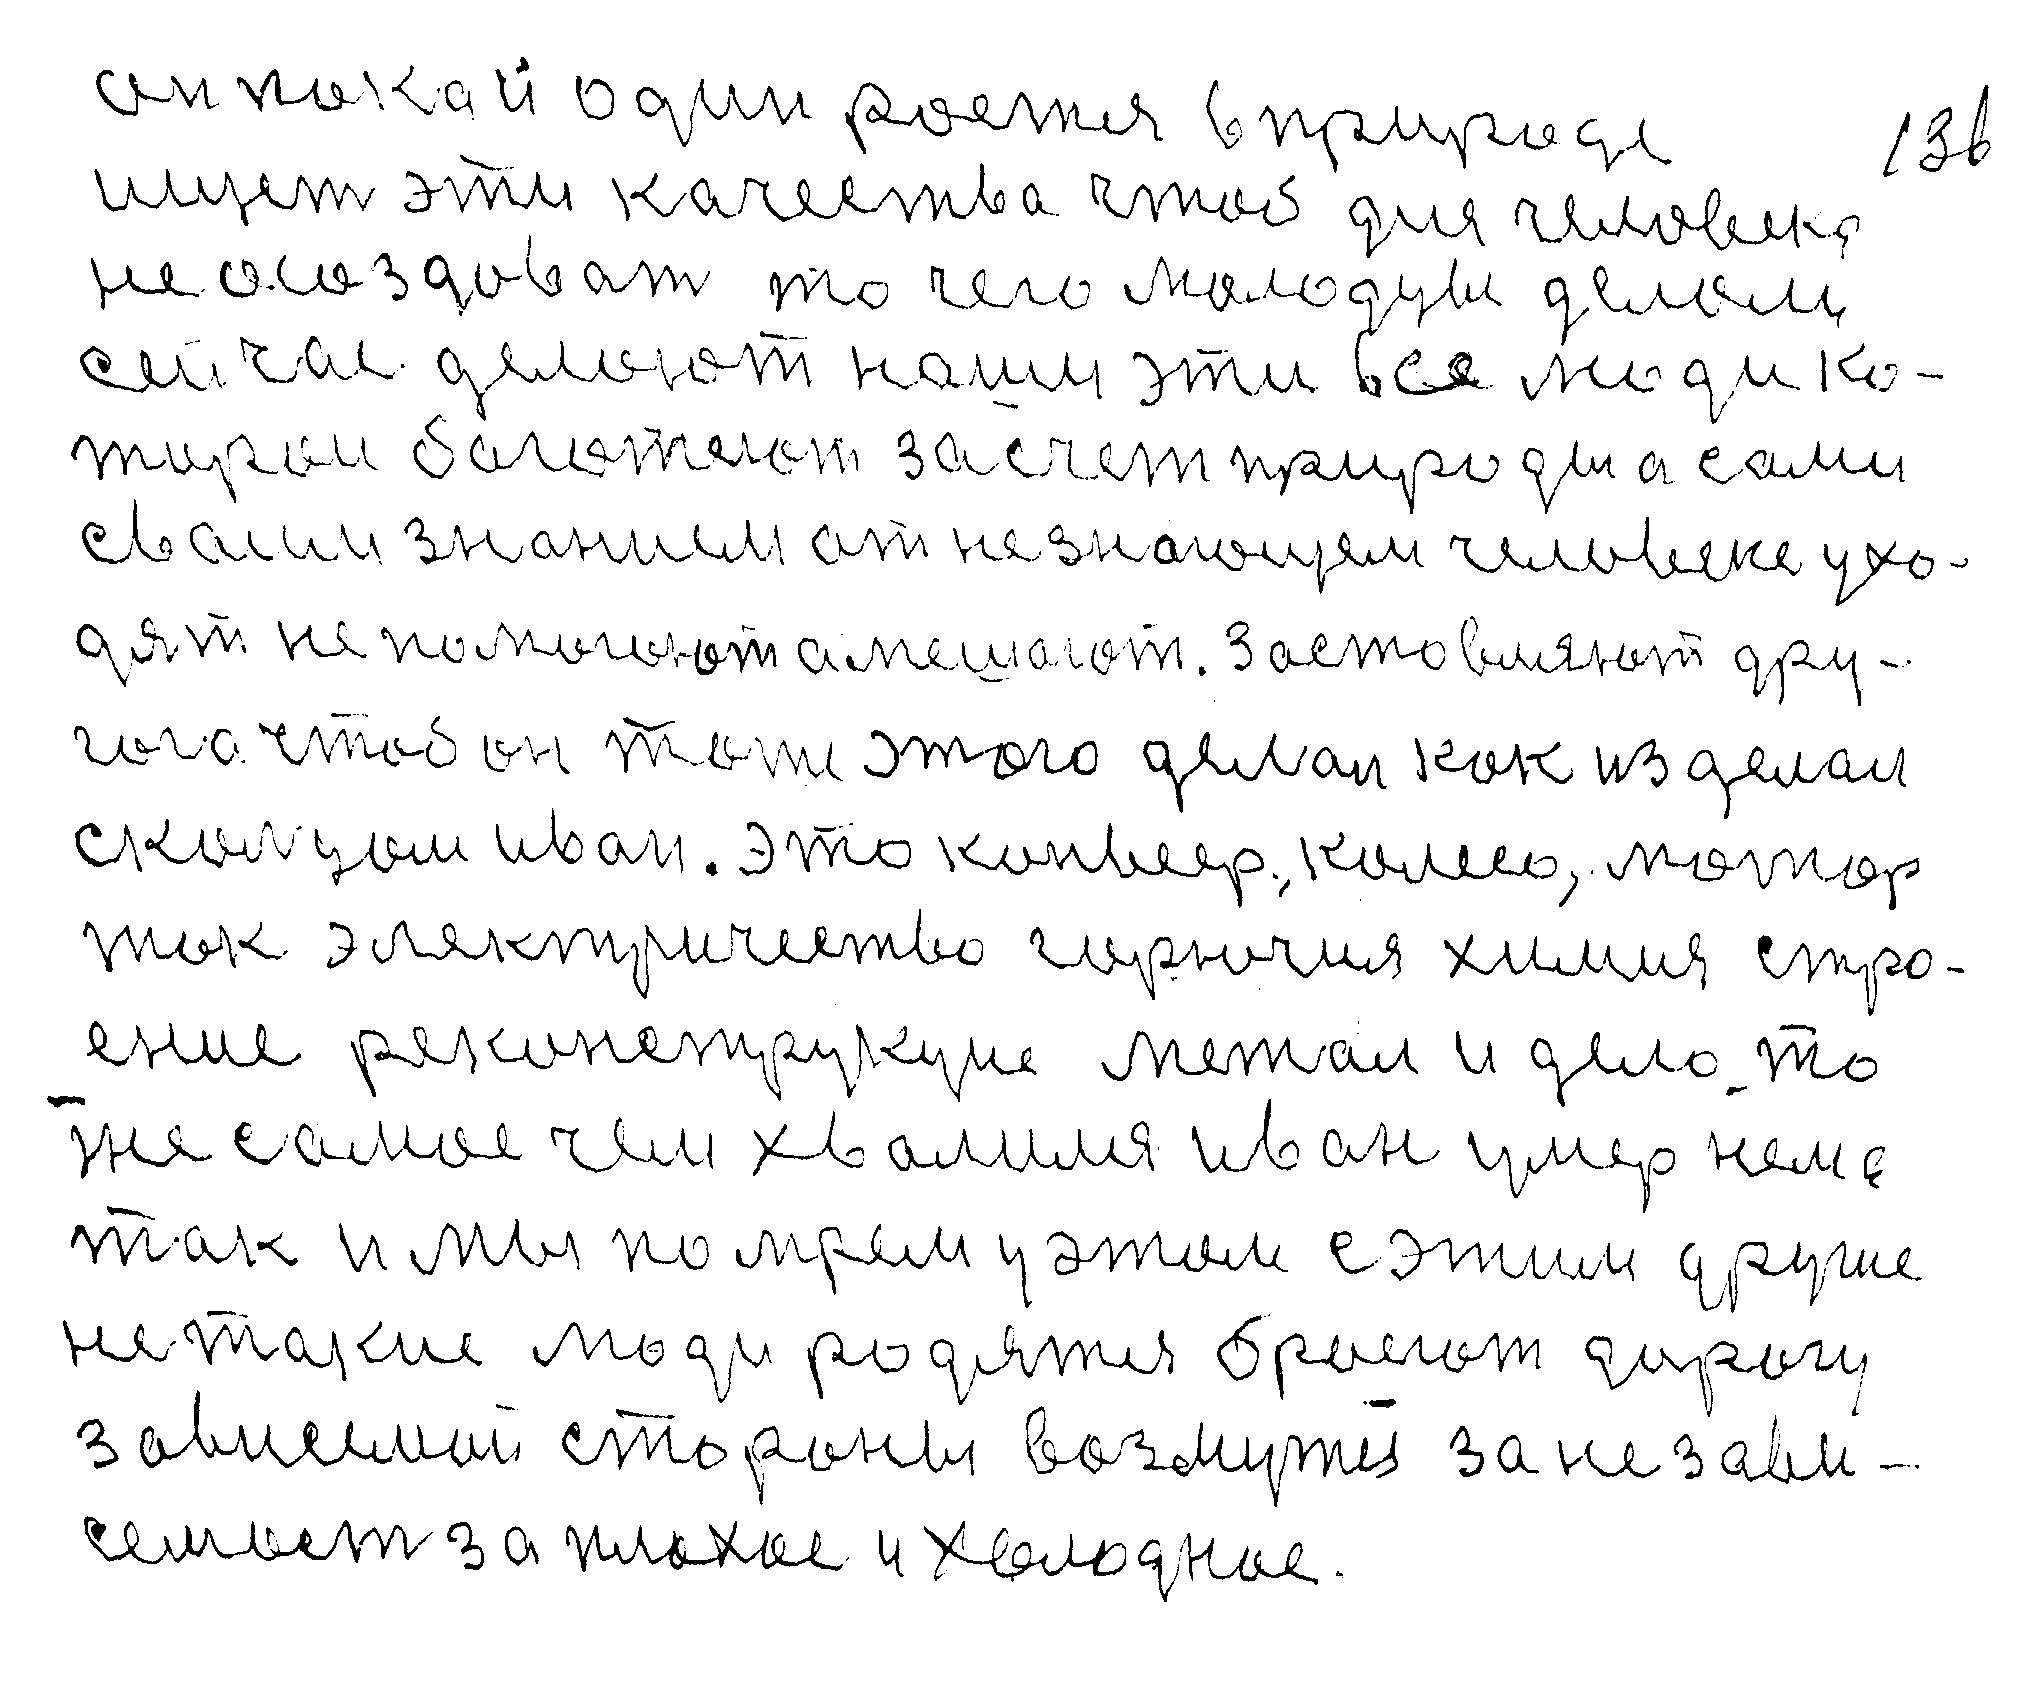 он покай один роется в природе 136
ищет эти качества чтоб для человека
не осоздоват то чего молодуш делом
сейчас делоют наши эти все люди ко-
торои боготеют за счет природы а сами
сваим знанием от незнающем человеке ухо-
дят не помогоют а мешают. Застовляют дру-
гога чтоб он тоже этого делал как изделал
сколцом иван. Это конвеер, колесо, мотор
ток электричество горючия химия стро-
ение реконструкцие метал и дело то
же самое чем хвалился иван умер нема
так и мы помрем у этом с этим друже
не такие люди родятся бросают дорогу
зависемай стороны возмутся за незави-
семост за плохое и холодное.